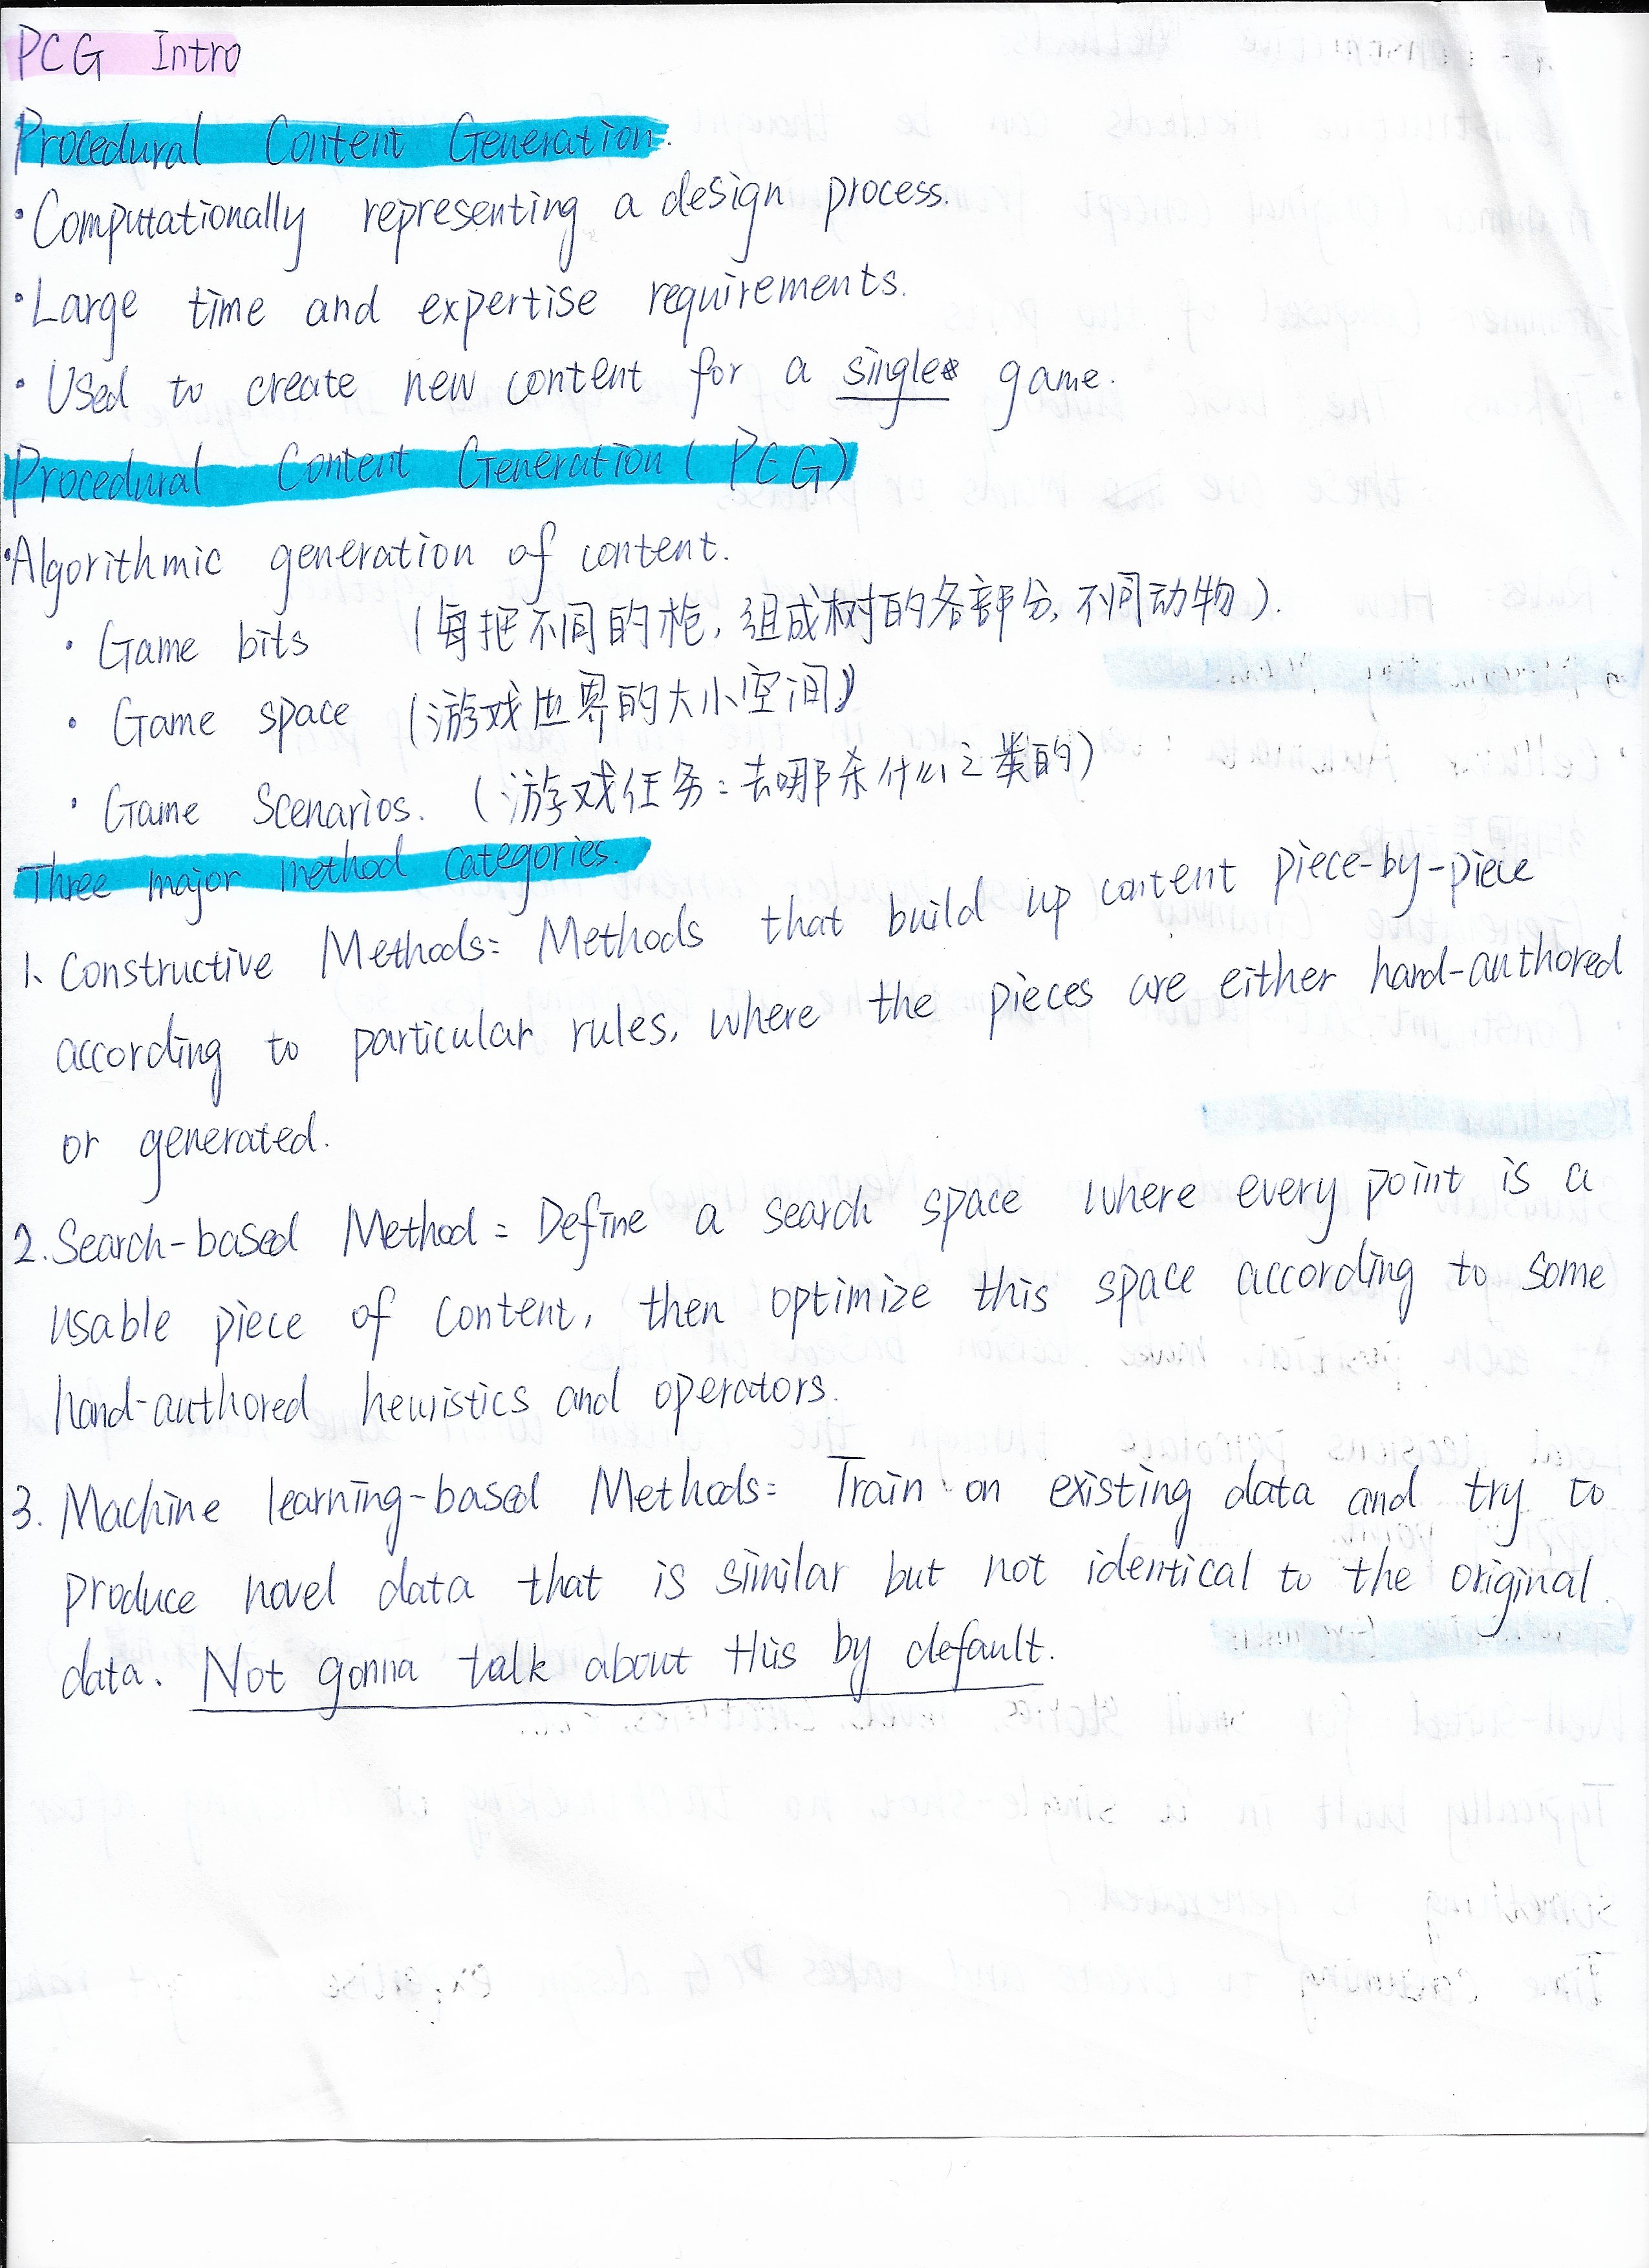 PCG Intro
Procedural Content Generation.
· Computationally representing a design process.
· Large time and expertise requirements.
· Used to create new content for a single game.
Procedural Content Generation (PCG)
· Algorithmic generation of content.
· Game bits (每把不同的枪, 组成树的各部分, 不同动物).
· Game space (游戏世界的大小空间)
· Game Scenarios. (游戏任务: 去哪杀什么之类的)
Three major method categories.
1. Constructive Methods: Methods that build up content piece-by-piece
according to particular rules, where the pieces are either hard-authored
or generated.
2. Search-based Method: Define a search space where every point is a
usable piece of content, then optimize this space according to some
hand-authored heuristics and operators.
3. Machine learning-based Methods: Train on existing data and try to
produce novel data that is similar but not identical to the original
data. Not gonna talk about this by default.